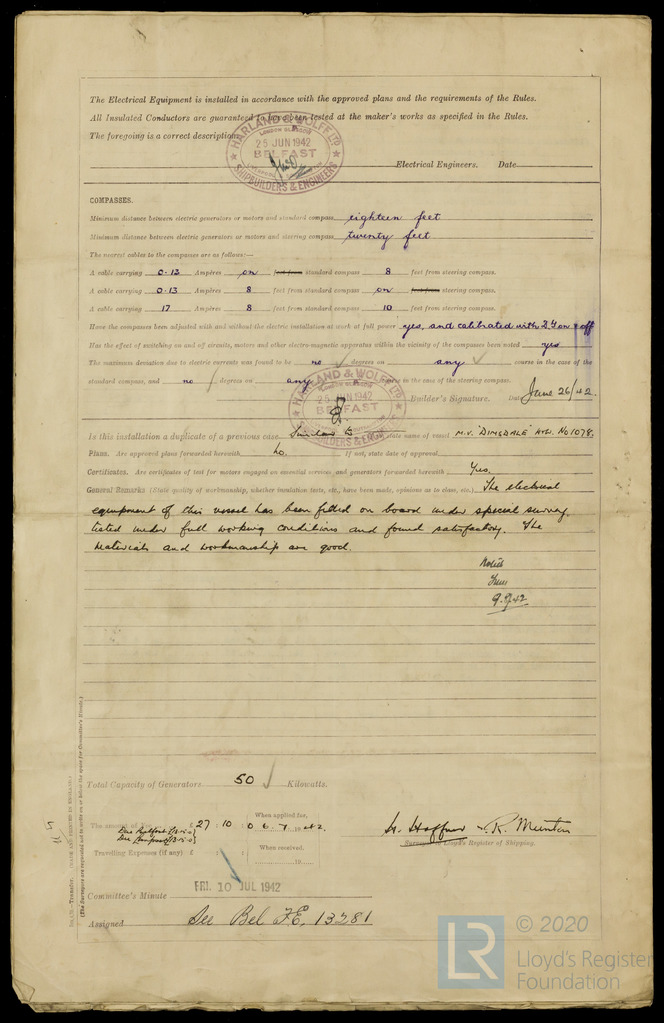 The Electrical Equipment is installed in accordance with the approved plans and the requirements of the Rules.
All Insulated Conductors are guaranteed to have been tested at the maker's works as specified in the Rules.
The foregoing is a correct description
HARLAND & WOLFF LTD
LONDON GLASGOW
25 JUN 1942
BELFAST
SHIPBUILDERS & ENGINEERS
Electrical Engineers. Date
COMPASSES.
Minimum distance between electric generators or motors and standard compass eighteen feet
Minimum distance between electric generators or motors and steering compass twenty feet
The nearest cables to the compasses are as follows:—
A cable carrying 0.13 Ampères on feet from standard compass 8 feet from steering compass.
A cable carrying 0.13 Ampères 8 feet from standard compass on feet from steering compass.
A cable carrying 17 Ampères 8 feet from standard compass 10 feet from steering compass.
Have the compasses been adjusted with and without the electric installation at work at full power yes, and calibrated with D.G on & off
Has the effect of switching on and off circuits, motors and other electro-magnetic apparatus within the vicinity of the compasses been noted yes
The maximum deviation due to electric currents was found to be no degrees on any course in the case of the
standard compass, and no degrees on any course in the case of the steering compass.
HARLAND & WOLFF LTD
LONDON GLASGOW
25 JUN 1942
BELFAST
SHIPBUILDERS & ENGINEERS
Builder's Signature. Date June 26/42.
Is this installation a duplicate of a previous case Similar to state name of vessel M.V. "DINSDALE" H&W. No 1078.
Plans. Are approved plans forwarded herewith no. If not, state date of approval
Certificates. Are certificates of test for motors engaged on essential services, and generators forwarded herewith Yes.
General Remarks (State quality of workmanship, whether insulation tests, etc., have been made, opinions as to class, etc.) The electrical
equipment of this vessel has been fitted on board under special survey
tested under full working conditions and found satisfactory. The
materials and workmanship are good.
Noted
Total Capacity of Generators 50 Kilowatts.
The amount of Fee £ 27 : 10 : 0 When applied for, 6.7.1942.
Travelling Expenses (if any) £ : : When received, 19
Surveyor to Lloyd's Register of Shipping.
FRI. 10 JUL 1942
Committee's Minute
Assigned See Bel F.E. 13281
(MADE AND PRINTED IN ENGLAND.)
(The Surveyors are requested not to write on or below the space for Committee's Minute.)
LR
© 2020
Lloyd's Register
Foundation